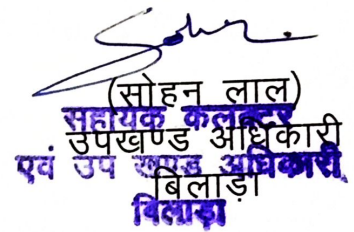 (सोहन लाल)
सहायक कलक्टर
उपखण्ड अधिकारी
एवं उप खण्ड अधिकारी
बिलाड़ा
बिलाड़ा